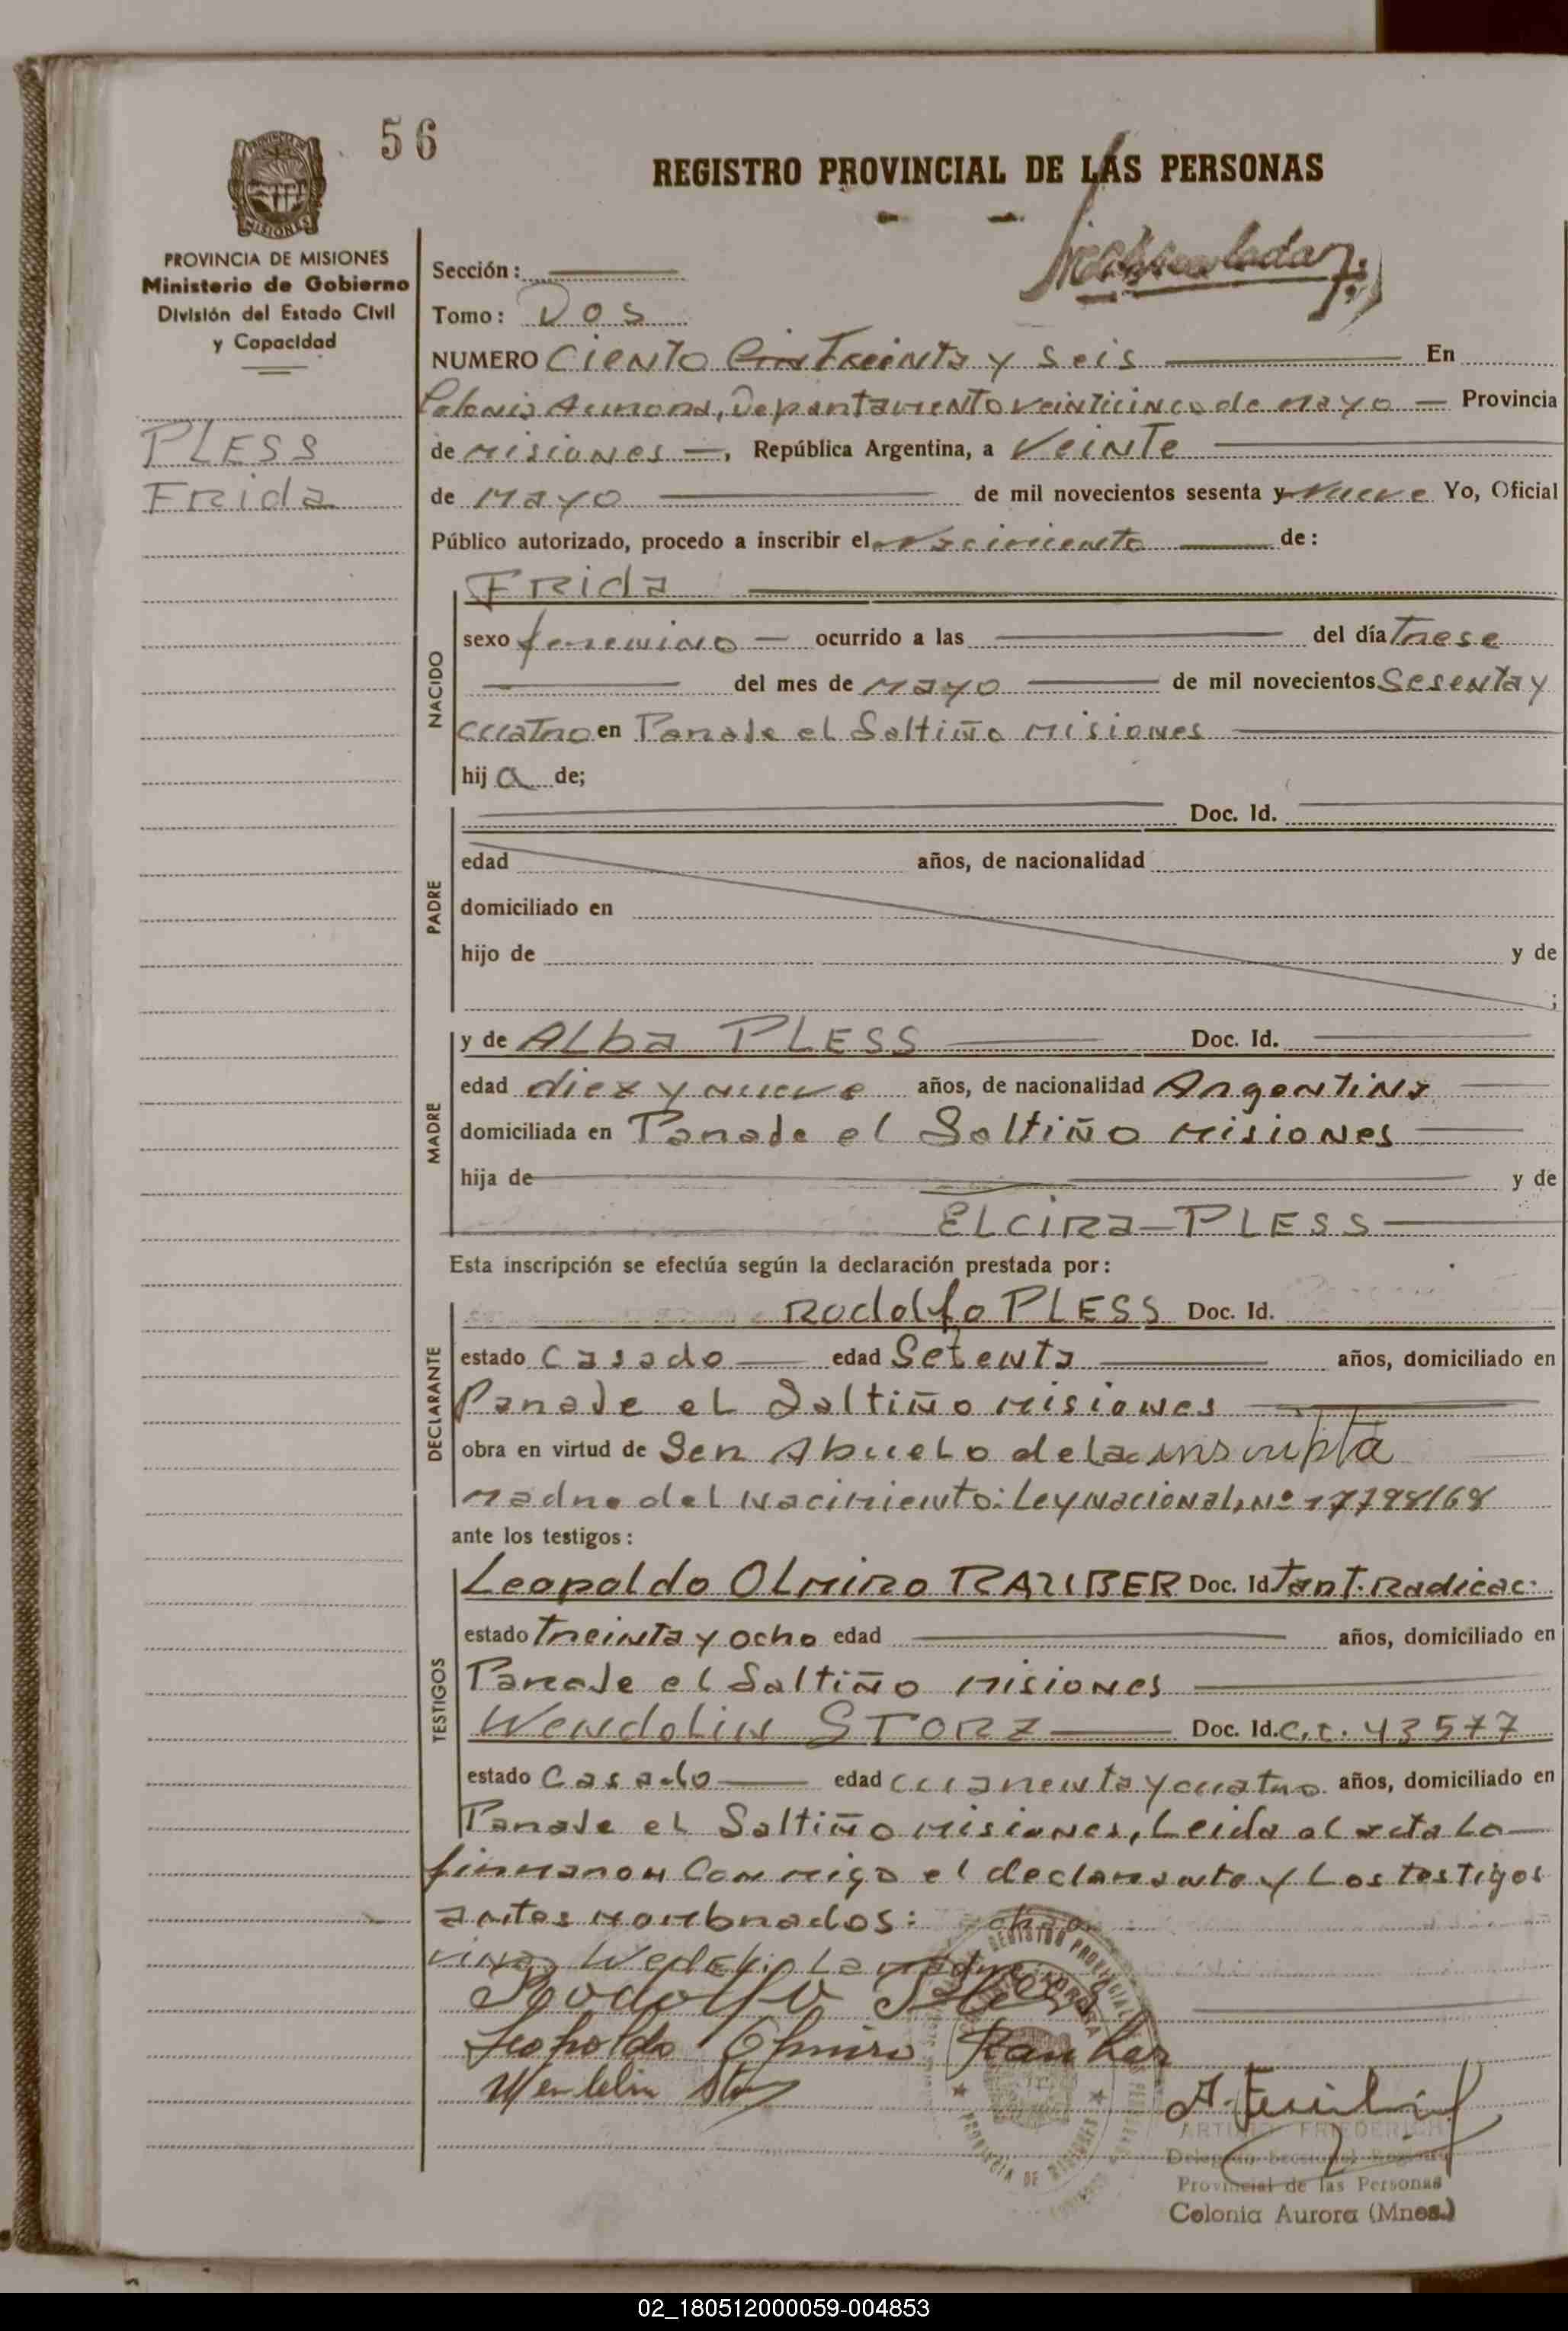 56
REGISTRO PROVINCIAL DE LAS PERSONAS
PROVINCIA DE MISIONES
Ministerio de Gobierno
División del Estado Civil
y Capacidad
PLESS
Frida
Sección:
Tomo: Dos
NUMERO Ciento Treinta y Seis En
Colonia Aurora, Departamento Veinticinco de Mayo Provincia
de Misiones, República Argentina, a Veinte
de Mayo de mil novecientos sesenta y Nueve Yo, Oficial
Público autorizado, procedo a inscribir el Nacimiento de:
NACIDO
Frida
sexo femenino ocurrido a las del día Trese
del mes de Mayo de mil novecientos Sesenta y
cuatro en Paraje el Saltiño Misiones
hija de;
PADRE
Doc. Id.
edad años, de nacionalidad
domiciliado en
hijo de y de
;
MADRE
y de Alba PLESS Doc. Id.
edad diez y nueve años, de nacionalidad Argentina
domiciliada en Paraje el Saltiño Misiones
hija de y de
Elcira PLESS
Esta inscripción se efectúa según la declaración prestada por:
DECLARANTE
Rodolfo PLESS Doc. Id.
estado Casado edad Setenta años, domiciliado en
Paraje el Saltiño Misiones
obra en virtud de Ser Abuelo de la inscripta
Madre del Nacimiento: Ley Nacional, Nº 17798/68
ante los testigos:
TESTIGOS
Leopoldo Olmiro RAUBER Doc. Id Tart. Radicac.
estado Treinta y ocho edad años, domiciliado en
Paraje el Saltiño Misiones
Wendolin STORZ Doc. Id. C.I. 43577
estado Casado edad cuarenta y cuatro años, domiciliado en
Paraje el Saltiño Misiones, Leida el acta La
firmaron Conmigo el declarante y Los testigos
antes nombrados:
Rodolfo Pless
Leopoldo Olmiro Rauber
ARTURO FRIEDERICH
Delegado Seccional Registro
Provincial de las Personas
Colonia Aurora (Mnes.)
02_180512000059-004853